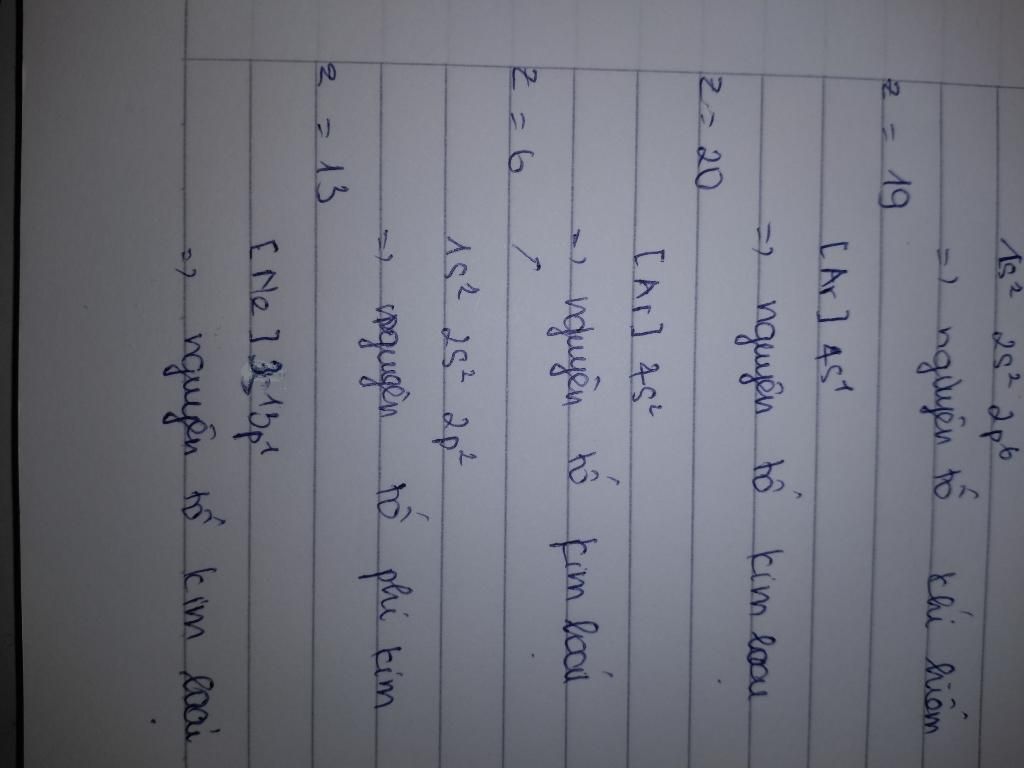 1s² 2s² 2p⁶
=> nguyên tố khí hiếm
z = 19
[Ar] 4s¹
=> nguyên tố kim loại
z = 20
[Ar] 4s²
=> nguyên tố kim loại
z = 6
1s² 2s² 2p²
=> nguyên tố phi kim
z = 13
[Ne] 3p¹
=> nguyên tố kim loại